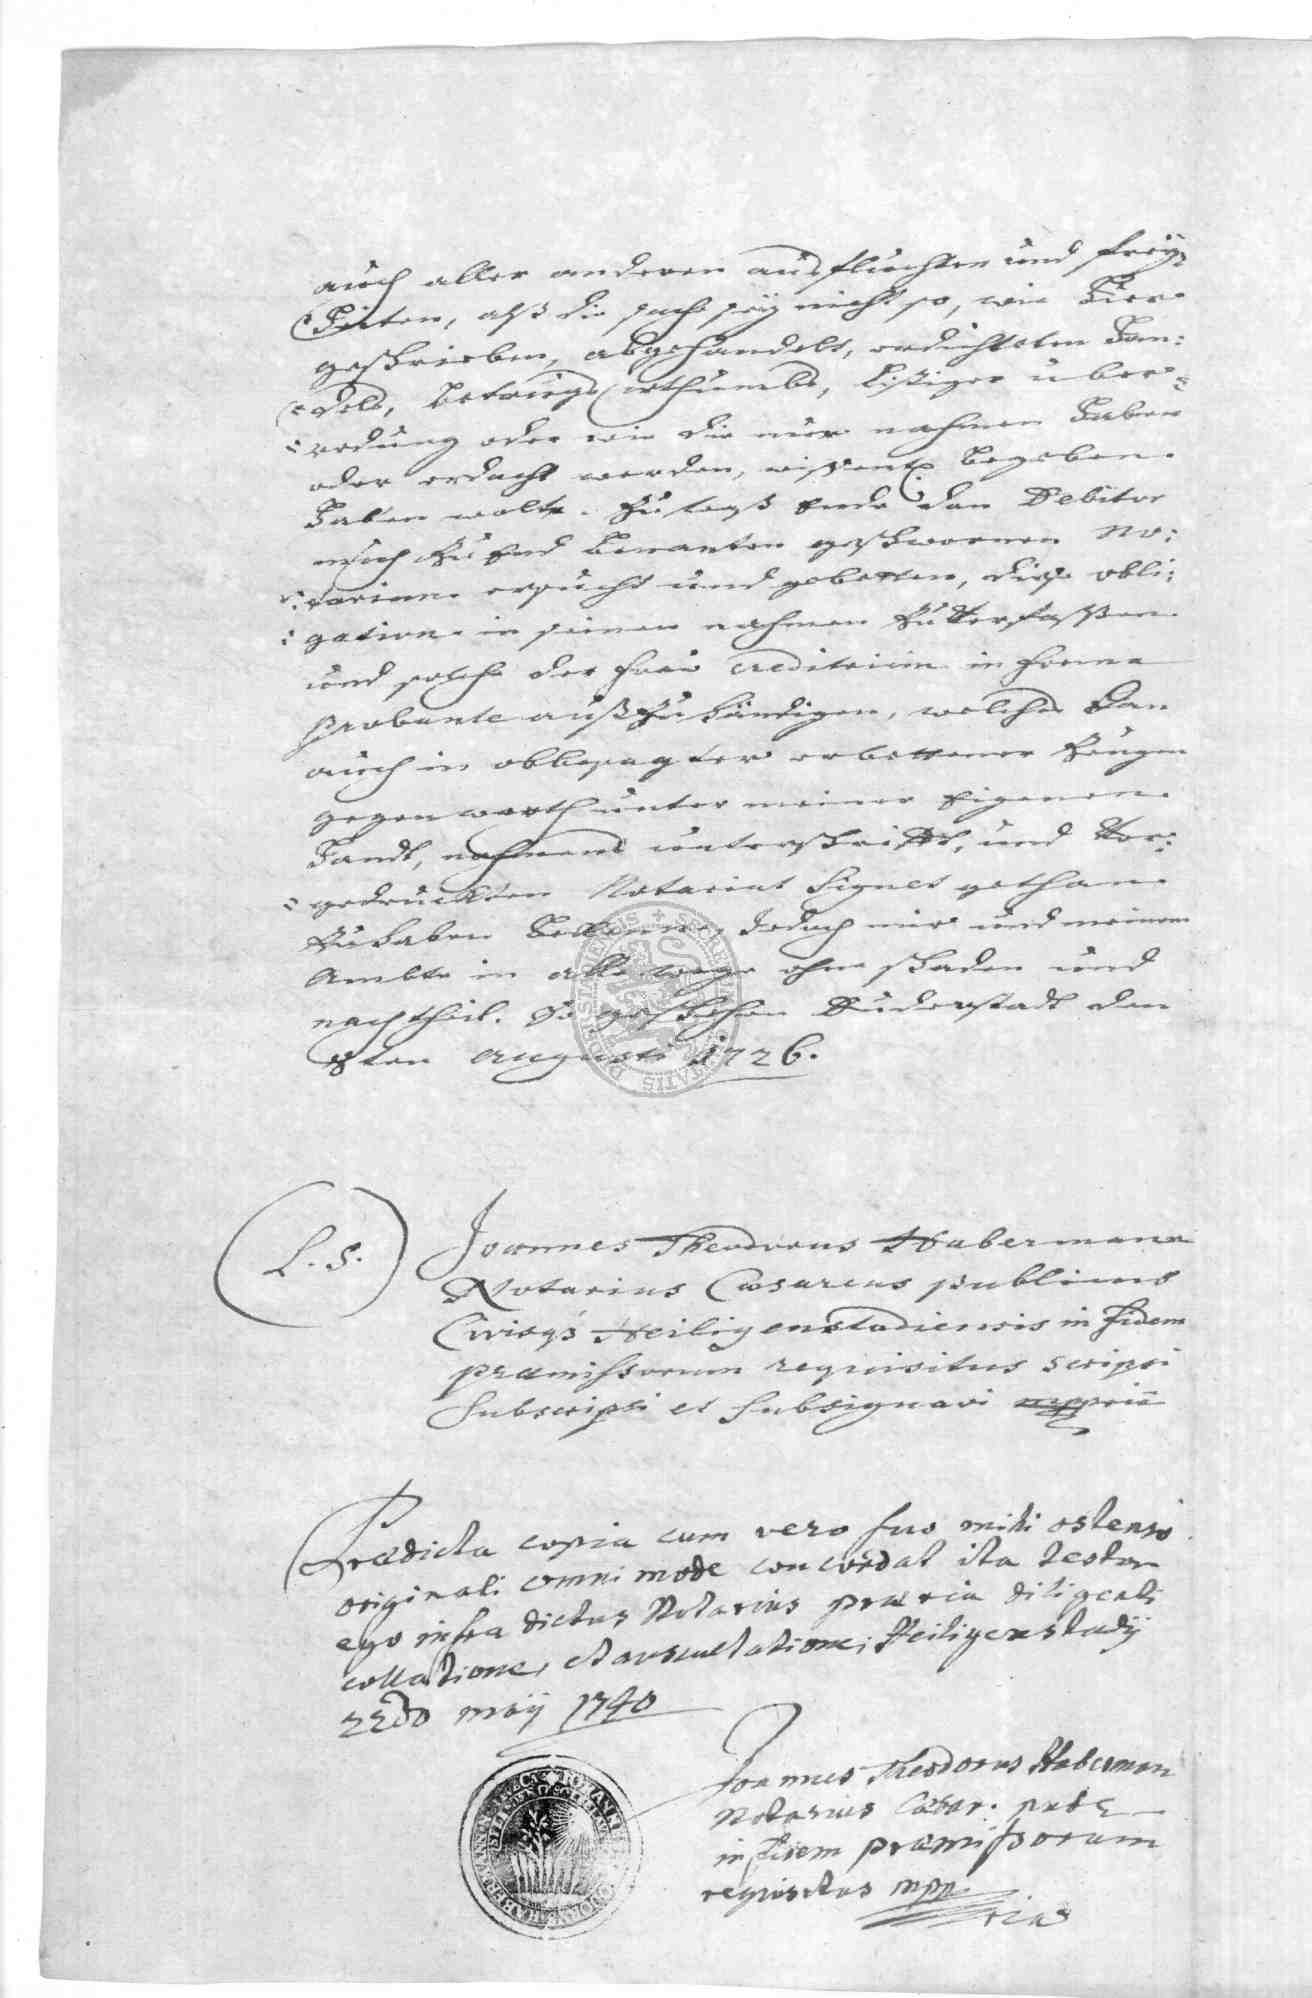 auch aller anderen ausfluchten und frey¬
heiten, alß die sache sey nicht so, wie hier
geschrieben, abgehandelt, erdichteten han:
dels, betrugs, irthumbs, listiger über¬
redung oder wie die nur nahmen haben
oder erdacht werden, wissentl. begeben
haben wolte. Zu leyß Ende dan Debitor
mich zu End benanten geschwornen No:
tarium ersucht und gebetten, diese obli:
gation in seinen nahmen zu verfassen
und solche der frau creditricin in forma
probante außzuhändigen, welches dan
auch in obbesagter erbettener Zeugen
gegenwarth unter meiner Eigenen
handt, nahmens unterschrifft, und vor:
gedruckten Notariat Signet gethan
zu haben bekenne, Jedoch mir und meinem
Ambte in alle wege ohne schaden und
nachtheil. So geschehen Duderstadt den
8ten Augusti 1726.
(L. S.)
Joannes Theodorus Habermann
Notarius Cæsareus publicus
Civisq3 Heiligenstadiensis in fidem
præmissorum requisitus scripsi
Subscripsi et Subsignavi mppria
Prædicta copia cum vero suo mihi ostenso
originali omnimode concordat ita testor
ego infra dictus Notarius prævia diligenti
collatione, et auscultatione; Heiligenstadij
22do maij 1740
Joannes Theodorus Haberman
Notarius Cæsar. publ
in fidem præmissorum
requisitus mpp
rias